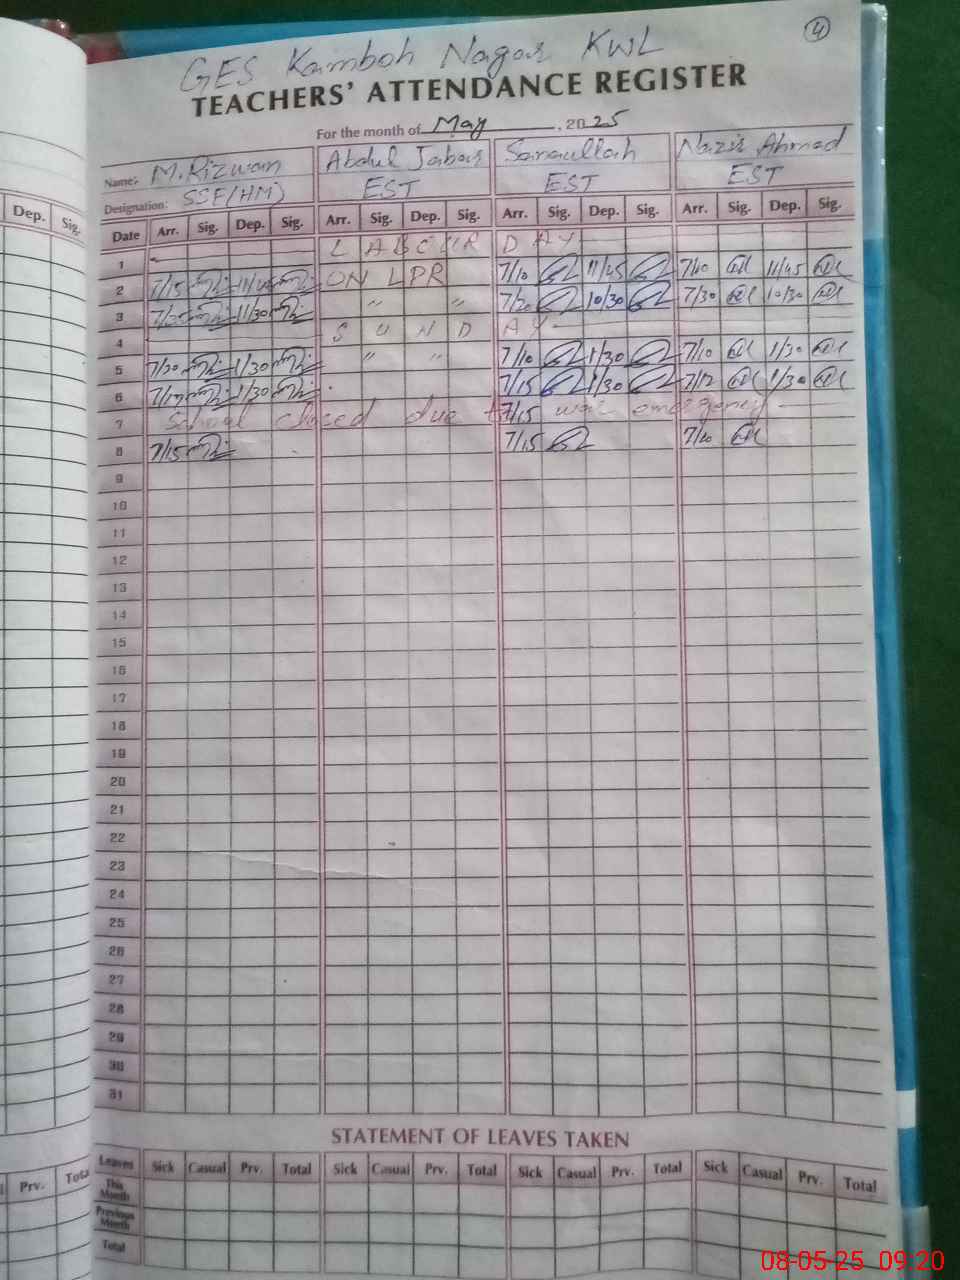 4
GES Kamboh Nagar KWL
TEACHERS' ATTENDANCE REGISTER
For the month of May , 2025
Name: M.Rizwan Abdul Jabar Sanaullah Nazir Ahmad
Designation: SSE(HM) EST EST EST
Dep. Sig. Date Arr. Sig. Dep. Sig. Arr. Sig. Dep. Sig. Arr. Sig. Dep. Sig. Arr. Sig. Dep. Sig.
1 LABOUR DAY
2 7/15 11/45 ON LPR 7/10 11/45 7/10 11/45
3 11/30 " " 7/20 10/30 7/30 10/30
4 SUNDAY
5 7/20 1/30 " " 7/10 1/30 7/10 1/30
6 1/30 7/15 1/30 7/12 1/30
7 School closed due to 7/15 war emergency
8 7/15 7/15 7/10
9
10
11
12
13
14
15
16
17
18
19
20
21
22
23
24
25
26
27
28
29
30
31
STATEMENT OF LEAVES TAKEN
Prv. Total Leaves Sick Casual Prv. Total Sick Casual Prv. Total Sick Casual Prv. Total Sick Casual Prv. Total
This Month
Previous Month
Total
08-05-25 09:20